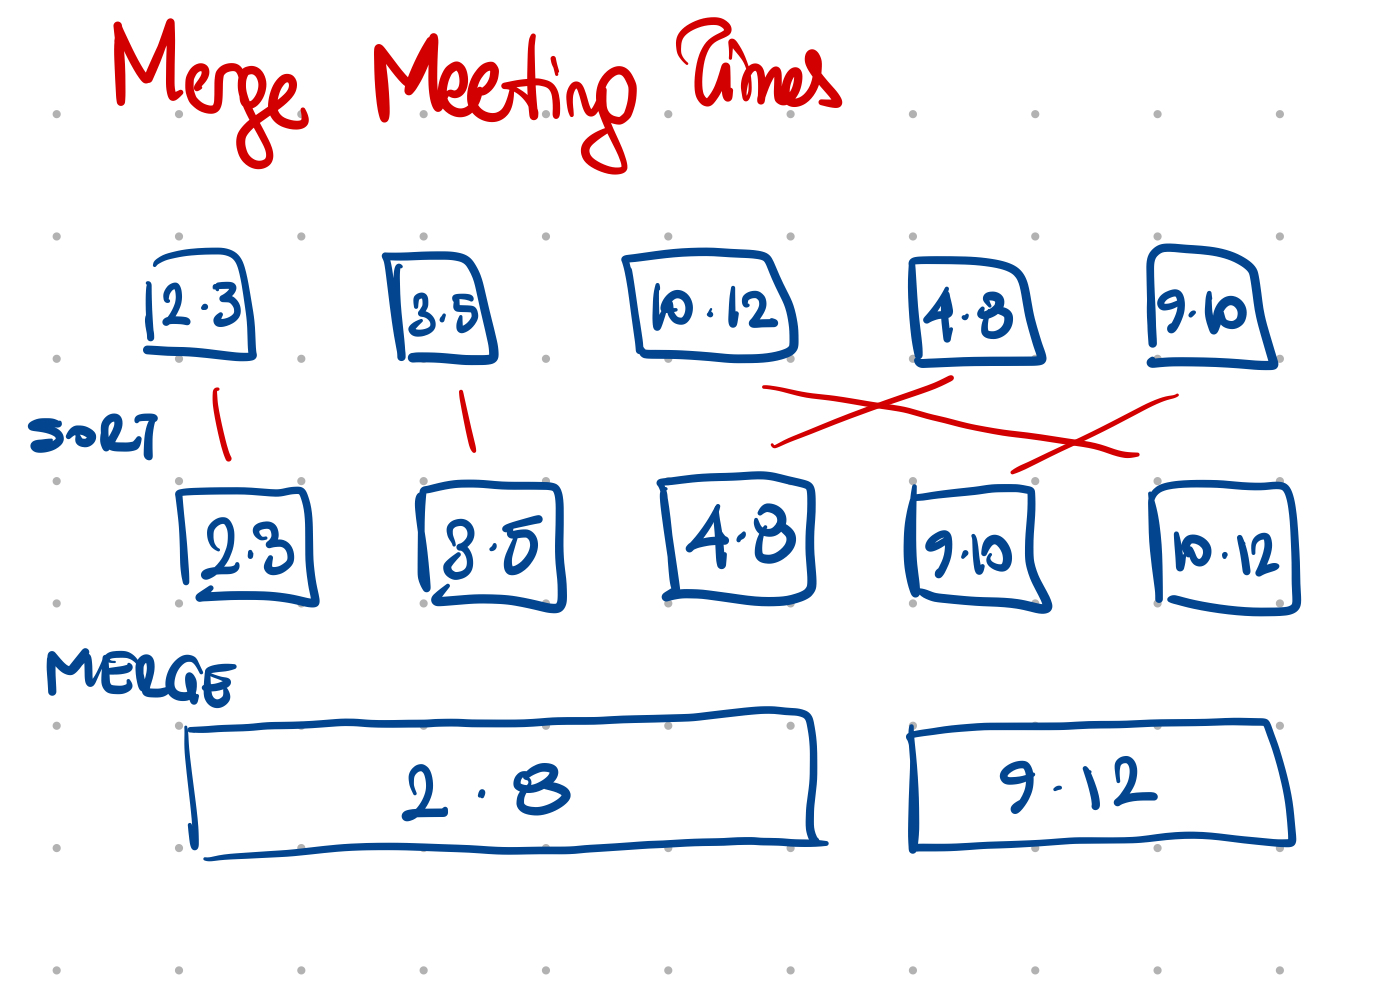 Merge Meeting Times
2.3 3.5 10.12 4.8 9.10
SORT
2.3 3.5 4.8 9.10 10.12
MERGE
2.8 9.12